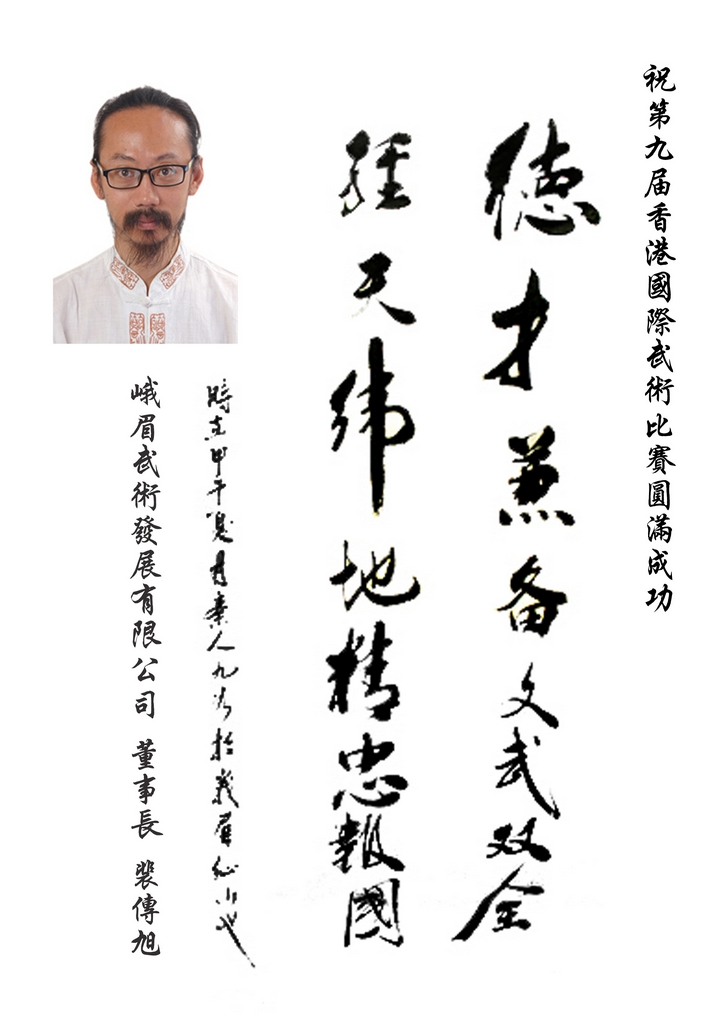 祝第九届香港國際武術比賽圓滿成功
德才兼备文武双全
經天纬地精忠報國
甲午夏月秦人九於峨眉仙山也
峨眉武術發展有限公司 董事長 裴傳旭